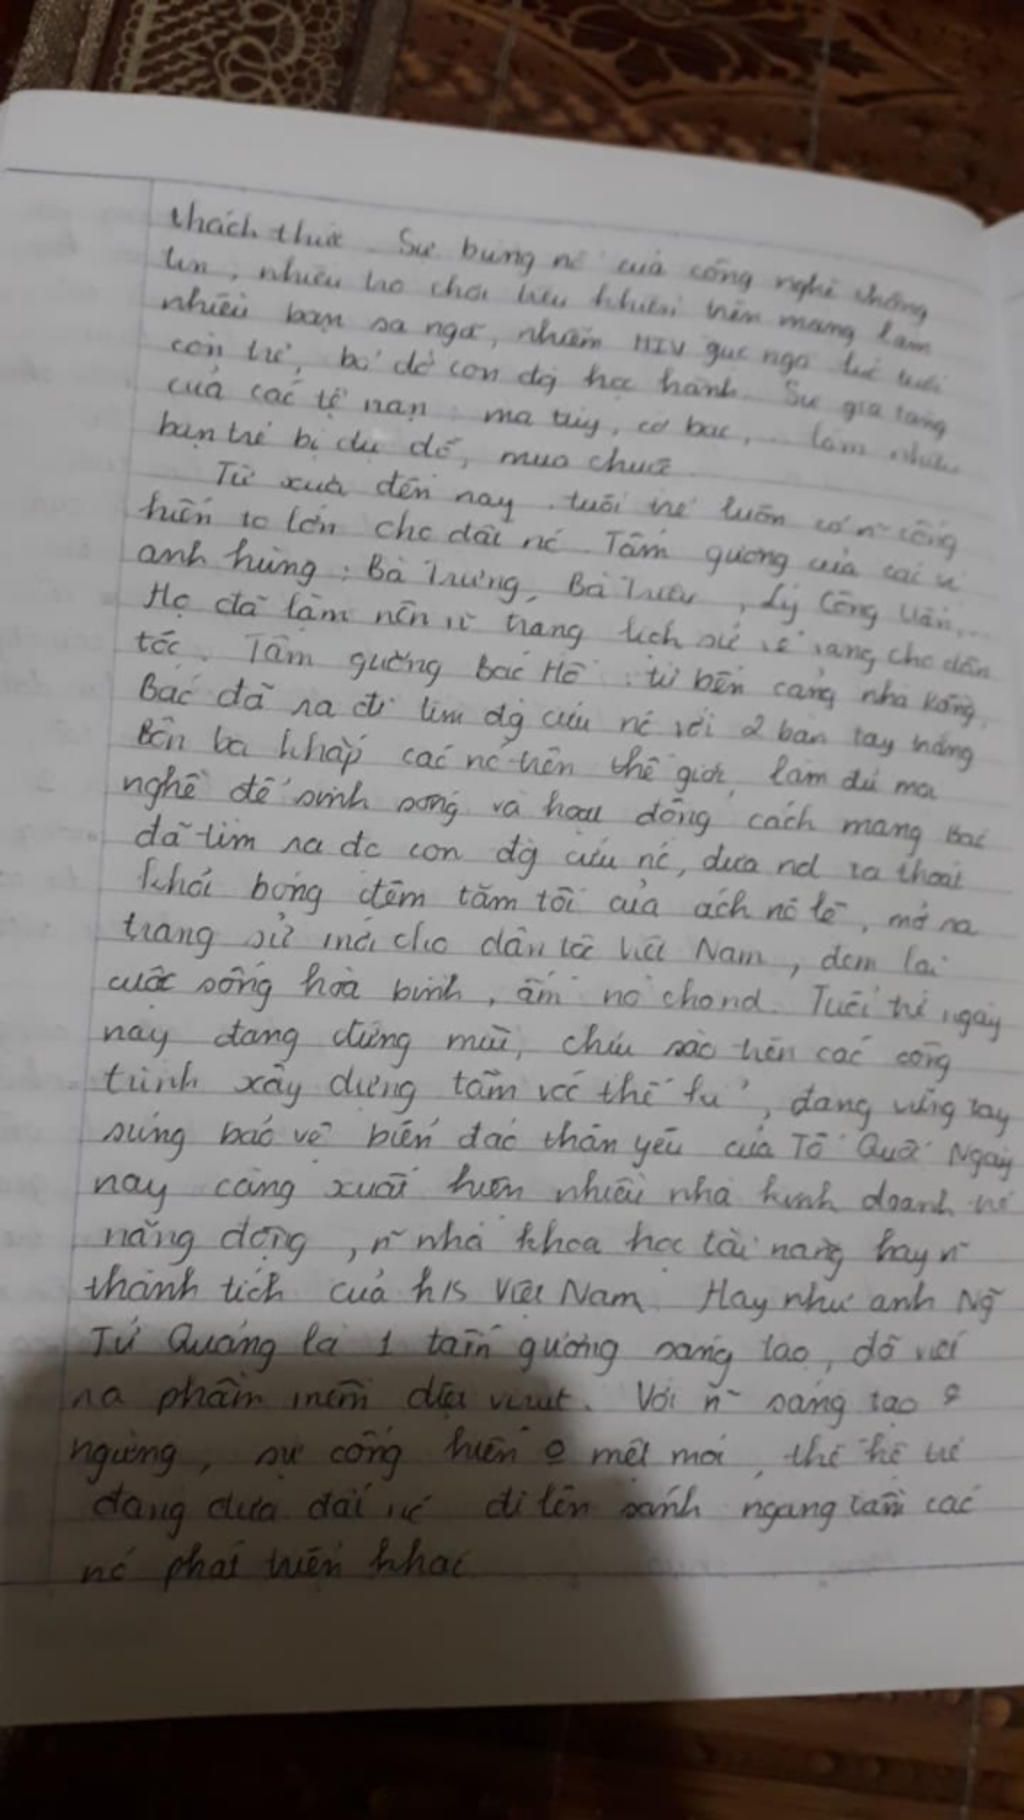 thách thức. Sự bùng nổ của công nghệ thông
tin, nhiều trò chơi tiêu khiển trên mạng làm
nhiều bạn sa ngã, nhiễm HIV gục ngã lúc tuổi
còn trẻ, bỏ dở con đg học hành. Sự gia tăng
của các tệ nạn: ma túy, cờ bạc,... làm nhiều
bạn trẻ bị dụ dỗ, mua chuộc.
Từ xưa đến nay, tuổi trẻ luôn có n~ cống
hiến to lớn cho đất nc. Tấm gương của các vị
anh hùng: Bà Trưng, Bà Triệu, Lý Công Uẩn,...
Họ đã làm nên n~ trang lịch sử vẻ vang cho dân
tộc. Tấm gương Bác Hồ: từ bến cảng nhà Rồng,
Bác đã ra đi tìm đg cứu nc với 2 bàn tay trắng
Bôn ba khắp các nc trên thế giới, làm đủ mọi
nghề để sinh sống và hoạt động cách mạng Bác
đã tìm ra đc con đg cứu nc, đưa nd ta thoát
khỏi bóng đêm tăm tối của ách nô lệ, mở ra
trang sử mới cho dân tộc Việt Nam, đem lại
cuộc sống hoà bình, ấm no cho nd. Tuổi trẻ ngày
nay đang đứng mũi, chịu sào trên các công
trình xây dựng tầm vóc thế kỉ, đang vững tay
súng bảo vệ biển đảo thân yêu của Tổ Quốc. Ngày
nay càng xuất hiện nhiều nhà kinh doanh trẻ
năng động, n~ nhà khoa học tài năng hay n~
thành tích của h/s Việt Nam. Hay như anh Ng~
Tử Quảng là 1 tấm gương sáng tạo, đã viết
ra phần mềm diệt virut. Với n~ sáng tạo o
ngừng, sự cống hiến o mệt mỏi, thế hệ trẻ
đang đưa đất nc đi lên sánh ngang tầm các
nc phát triển khác